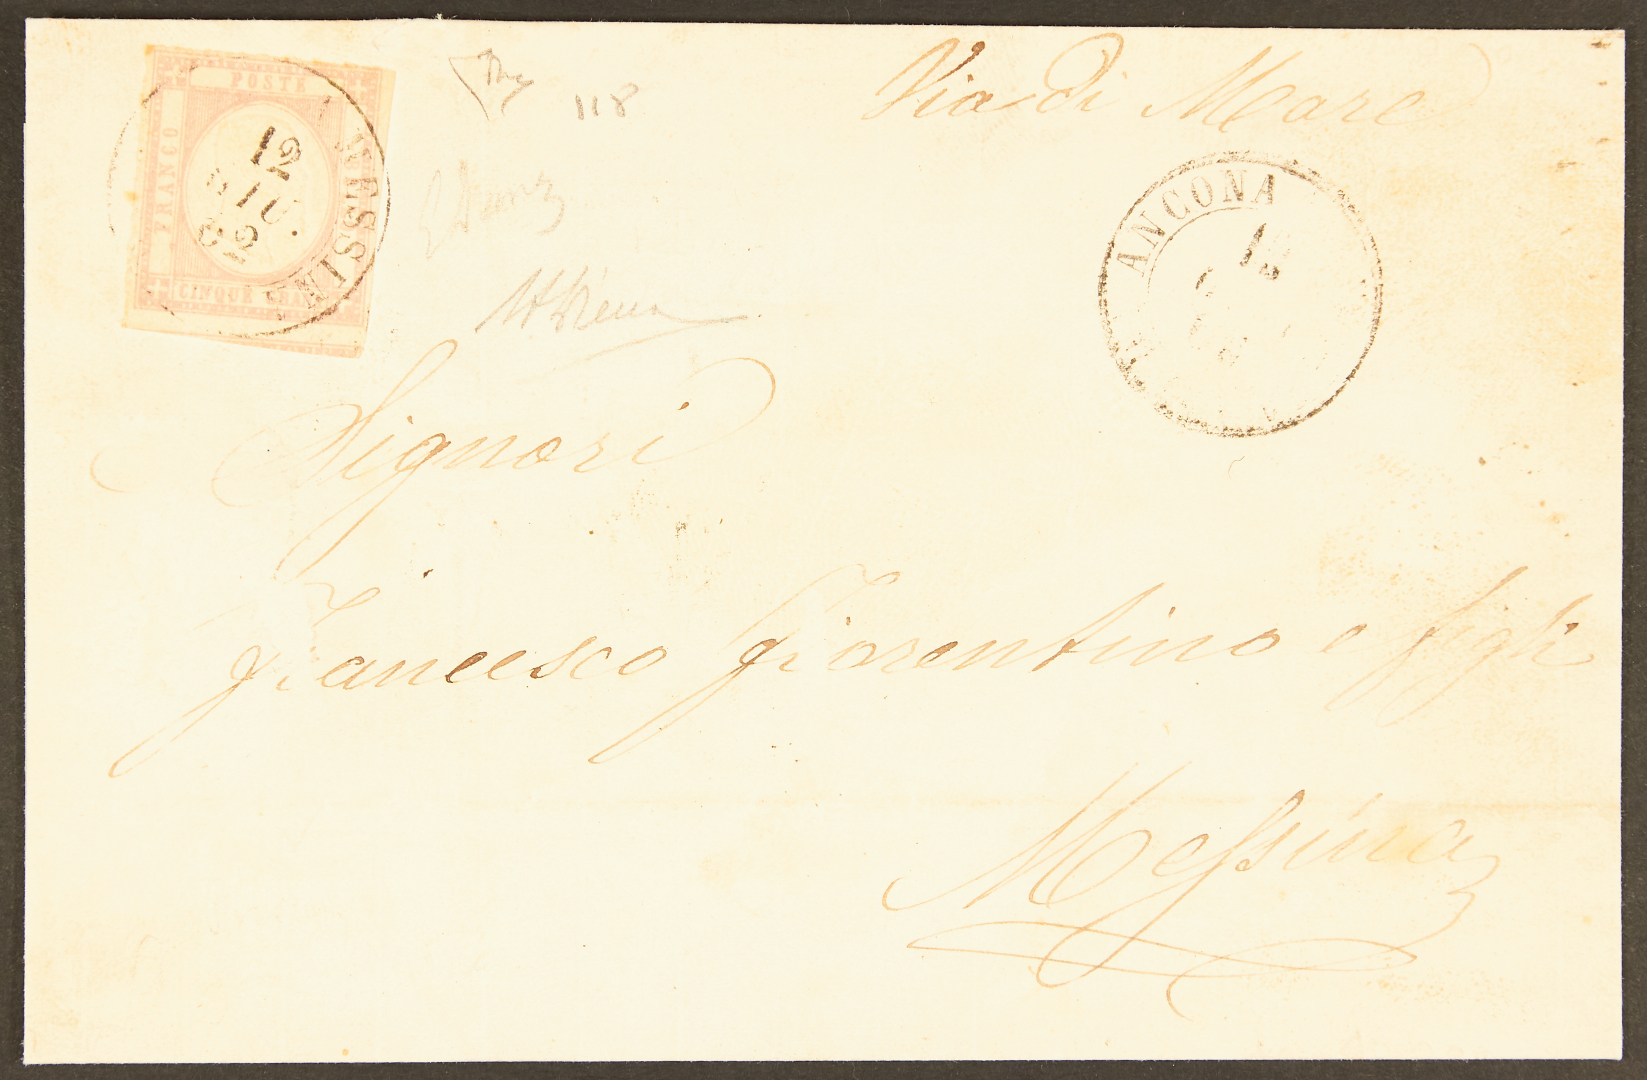 POSTE
FRANCO
CINQUE GRANA
MESSINA
12
GIU.
62
118
Via di Mare
ANCONA
Signori
Francesco Fiorentino e figli
Messina